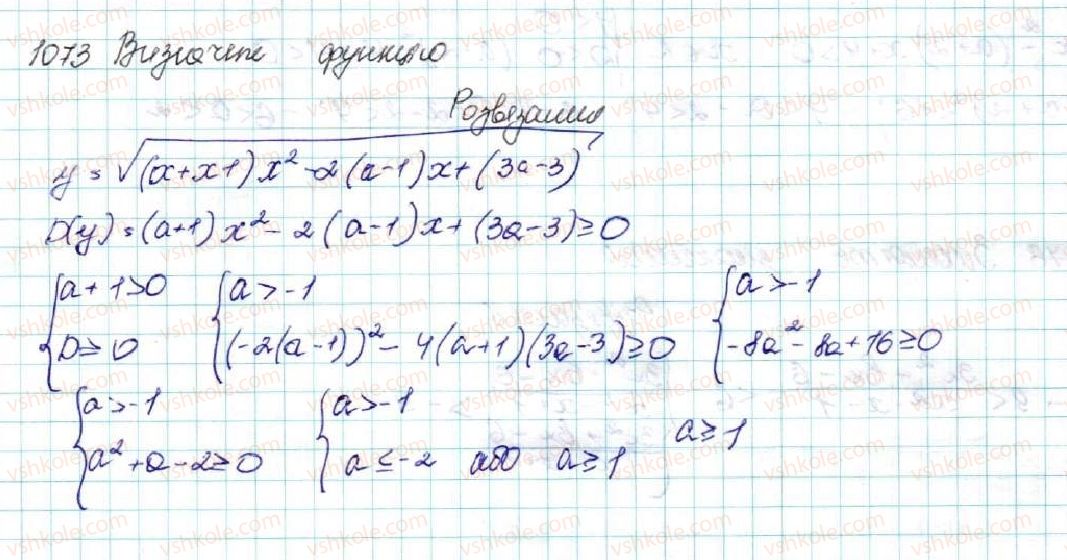 1073 Визначте функцію
Розвязання
y = √(x+x+1)x² -2(a-1)x+(3a-3)
D(y) = (a+1)x² - 2(a-1)x+(3a-3) ≥ 0
{a+1>0 {a>-1 {a>-1
D≥0 (-2(a-1))² - 4(a+1)(3a-3) ≥ 0 -8a² - 8a+16 ≥ 0
{a>-1 {a>-1 a≥1
a²+a-2≥0 a≤-2 або a≥1
vshkole.com